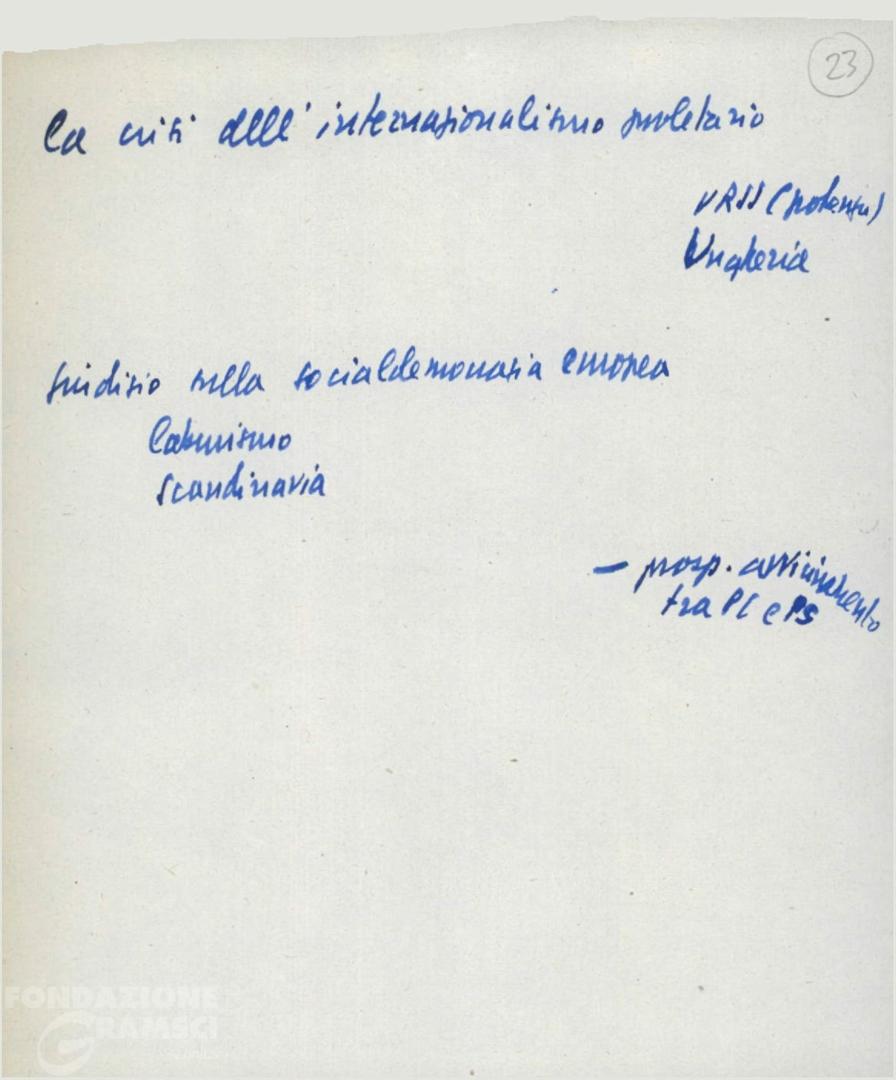 23
La crisi dell'internazionalismo proletario
URSS (potenza)
Ungheria
giudizio sulla socialdemocrazia europea
Laburismo
Scandinavia
— prosp. avvicinamento
tra PC e PS
FONDAZIONE
GRAMSCI